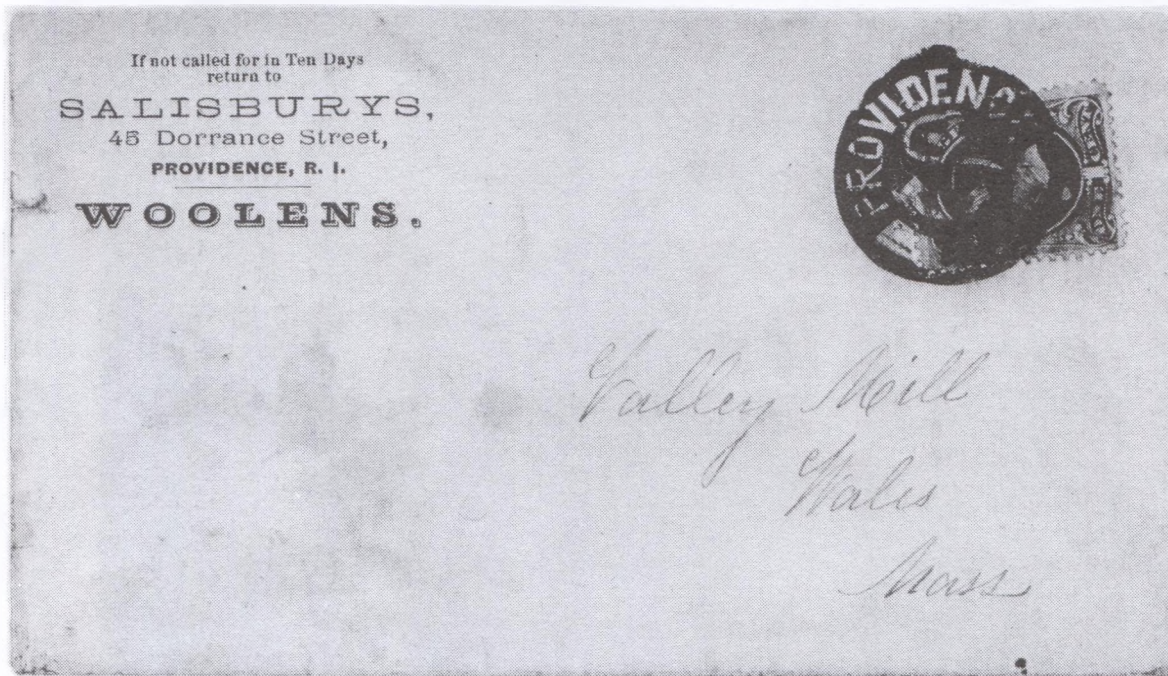 If not called for in Ten Days
return to
SALISBURYS,
45 Dorrance Street,
PROVIDENCE, R. I.
WOOLENS.
PROVIDENC
Valley Mill
Wales
Mass